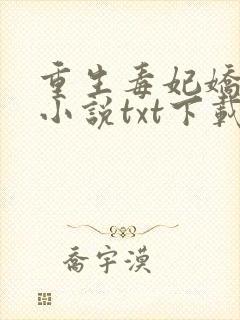 重生毒妃嬌
小說txt下載
喬宇漠